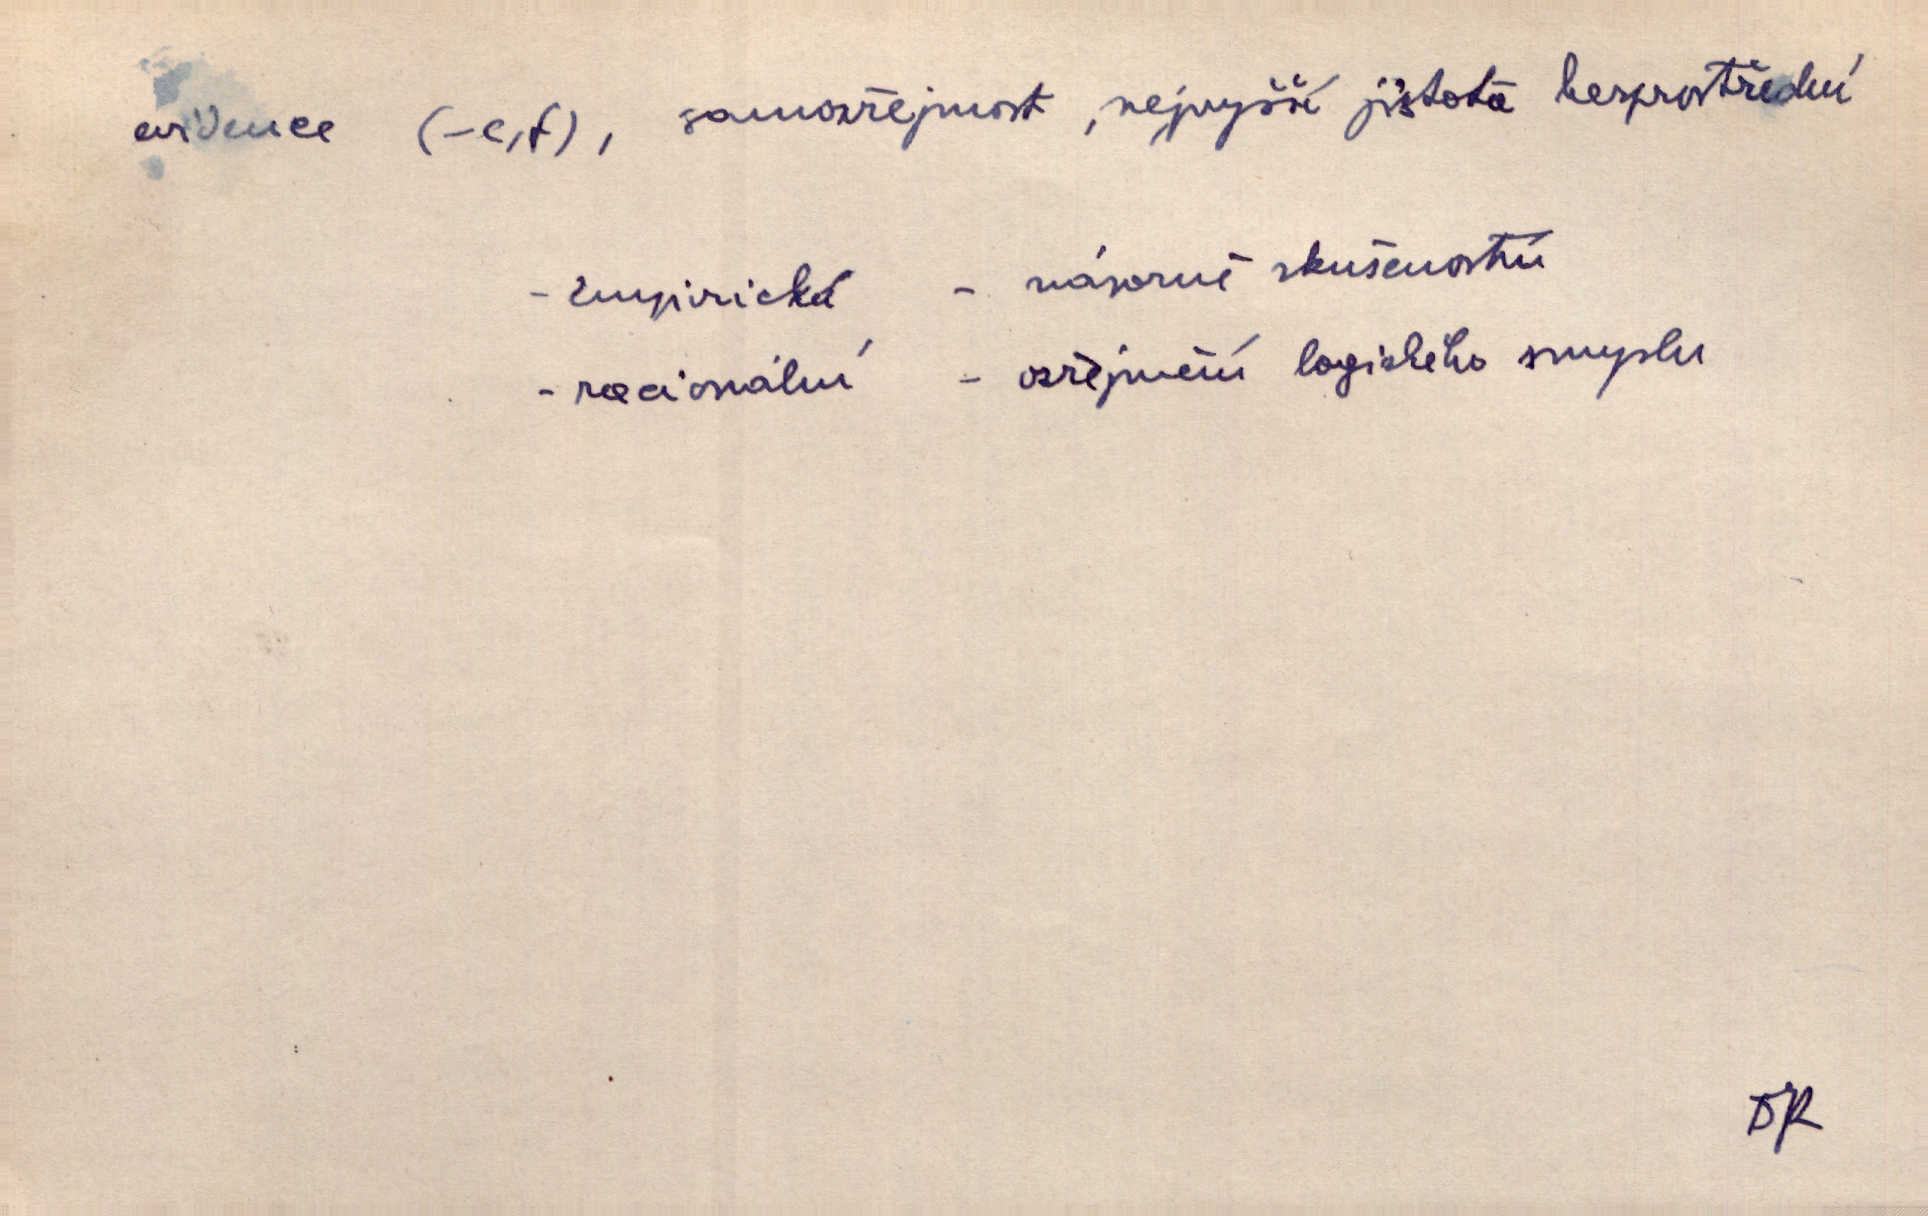 evidence (-e,f), samozřejmost, nejvyšší jistota bezprostřední
- empirická - názorné zkušenosti
- racionální - ozřejmění logického smyslu
DR